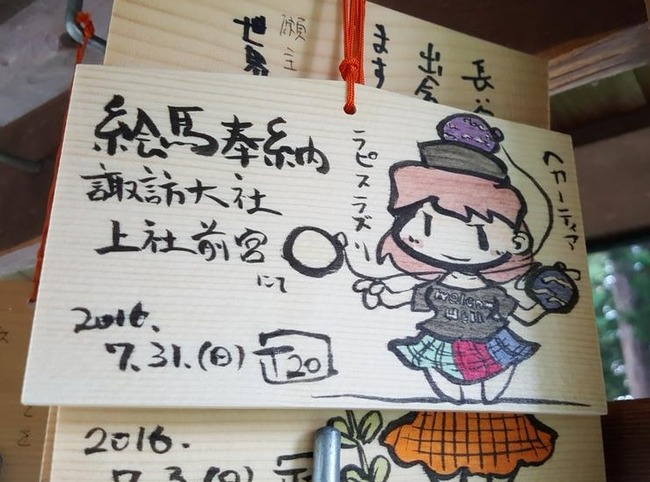 絵馬奉納
諏訪大社
上社前宮
にて
2016.
7.31.(日)
ラピスラズリ
ヘカーティア
Welcome
Hell
長谷
出会
ます
願主
世界
2016.
7.3
(日)